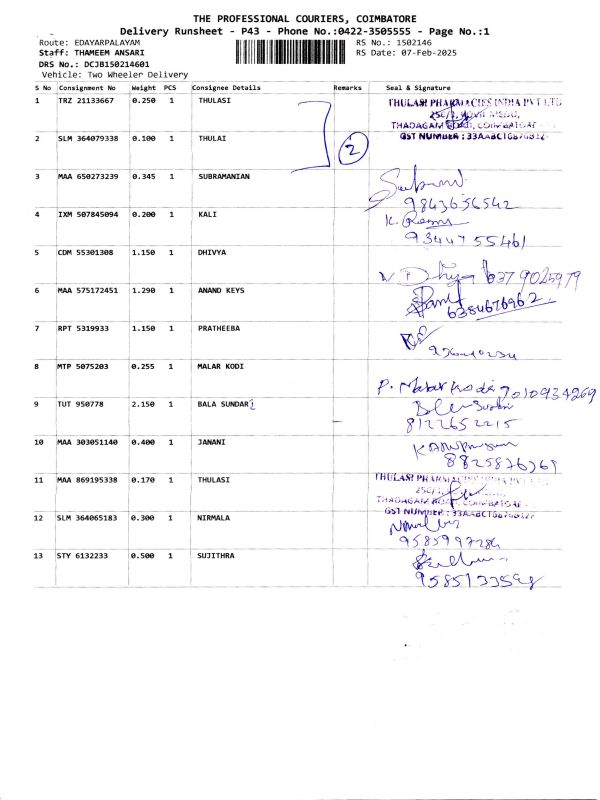 THE PROFESSIONAL COURIERS, COIMBATORE
Delivery Runsheet - P43 - Phone No.:0422-3505555 - Page No.:1
Route: EDAYARPALAYAM RS No.: 1502146
Staff: THAMEEM ANSARI RS Date: 07-Feb-2025
DRS No.: DCJB150214601
Vehicle: Two Wheeler Delivery
S No Consignment No Weight PCS Consignee Details Remarks Seal & Signature
1 TRZ 21133667 0.250 1 THULASI THULASI PHARMACIES INDIA PVT LTD
THADAGAM ROAD, COIMBATORE
2 SLM 364079338 0.100 1 THULAI 2 GST NUMBER : 33AABCT
3 MAA 650273239 0.345 1 SUBRAMANIAN
9843656542
4 IXM 507845094 0.200 1 KALI K.
9344755461
5 CDM 55301308 1.150 1 DHIVYA
Dhivya 6379025979
6 MAA 575172451 1.290 1 ANAND KEYS
6384676962
7 RPT 5319933 1.150 1 PRATHEEBA
8 MTP 5075203 0.255 1 MALAR KODI
P. Malar Kodi 9010934269
9 TUT 950778 2.150 1 BALA SUNDARI
8122652215
10 MAA 303051140 0.400 1 JANANI
8825876761
11 MAA 869195338 0.170 1 THULASI THULASI PHARMACIES INDIA PVT LTD
THADAGAM ROAD, COIMBATORE
GST NUMBER : 33AABCT
12 SLM 364065183 0.300 1 NIRMALA
9585997286
13 STY 6132233 0.500 1 SUJITHRA